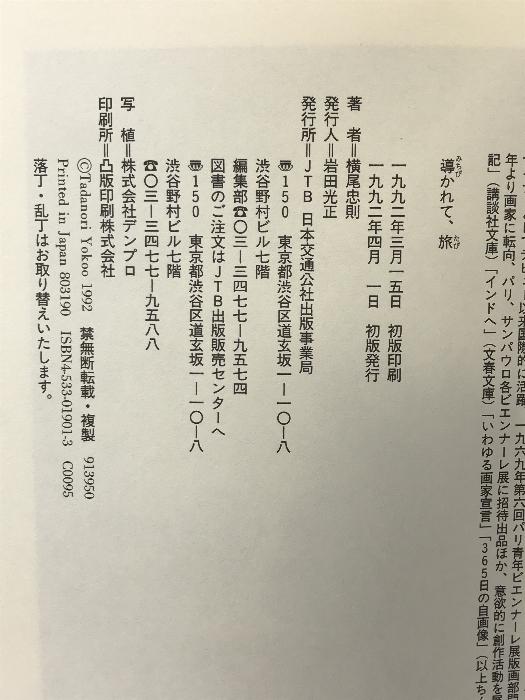 以来国際的に活躍。一九六九年第六回パリ青年ビエンナーレ展版画部門
年より画家に転向、パリ、サンパウロ各ビエンナーレ展に招待出品ほか、意欲的に創作活動を
記」(講談社文庫)「インドへ」(文春文庫)「いわゆる画家宣言」「365日の自画像」(以上ち
導かれて、旅
みちび
たび
一九九二年三月一五日 初版印刷
一九九二年四月 一日 初版発行
著 者=横尾忠則
発行人=岩田光正
発行所=JTB 日本交通公社出版事業局
〠150 東京都渋谷区道玄坂一―一〇―八
渋谷野村ビル七階
編集部☎〇三―三四七七―九五七四
図書のご注文はJTB出版販売センターへ
〠150 東京都渋谷区道玄坂一―一〇―八
渋谷野村ビル七階
☎〇三―三四七七―九五八八
写 植=株式会社デンプロ
印刷所=凸版印刷株式会社
©Tadanori Yokoo 1992 禁無断転載・複製 913950
Printed in Japan 803190 ISBN4-533-01901-3 C0095
落丁・乱丁はお取り替えいたします。